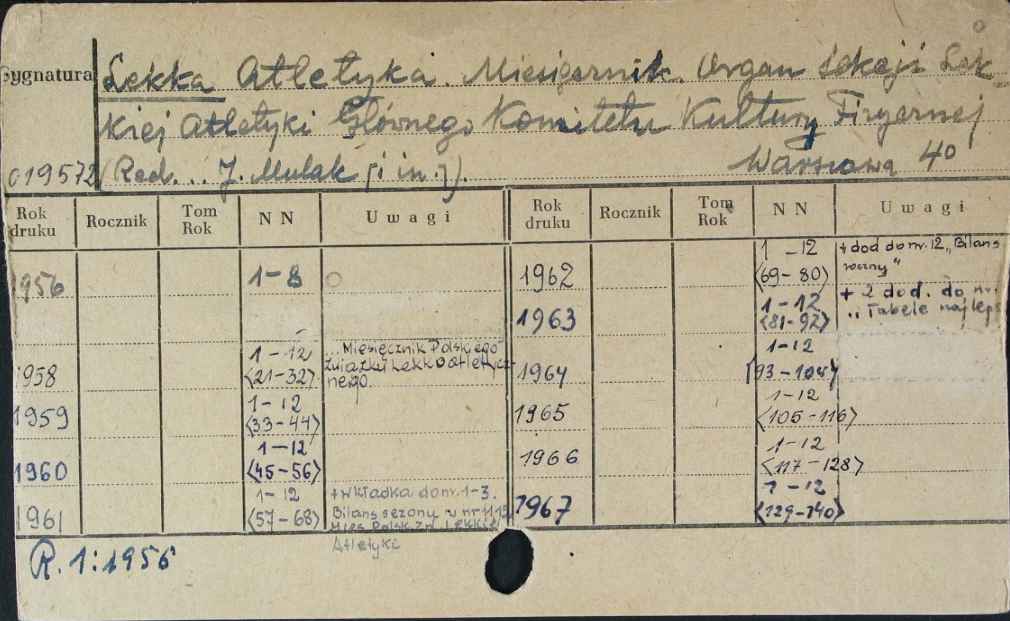 Sygnatura
Lekka Atletyka. Miesięcznik. Organ Sekcji Lek
kiej Atletyki Głównego Komitetu Kultury Fizycznej
019572
(Red... J. Mulak [i in.]).
Warszawa 4°
Rok druku Rocznik Tom Rok NN Uwagi Rok druku Rocznik Tom Rok NN Uwagi
1956 1-8
1958 1-12 „Miesięcznik Polskiego
<21-32> Związku Lekkoatletycz
nego
1959 1-12
<33-44>
1960 1-12
<45-56>
1961 1-12 + wkładka do nr. 1-3.
<57-68> Bilans sezonu w nr
Mies. Polsk. Zw. Lekkiej
Atletyki
1962 1-12 + dod do nr. 12 „Bilans
<69-80> roczny"
1963 1-12 + 2 dod. do nr.
<81-92> „Tabele najleps
1964 1-12
<93-104>
1965 1-12
<105-116>
1966 1-12
<117-128>
1967 1-12
<129-140>
R. 1:1956